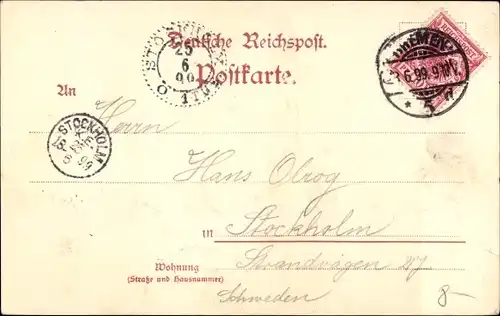 Deutsche Reichspost.
Postkarte.
An
Herrn
Hans Olrog
in Stockholm
Strandvägen
Wohnung
(Straße und Hausnummer)
Schweden
8-
25
6
STOCKHOLM
BREMEN
6.99.9
* 5